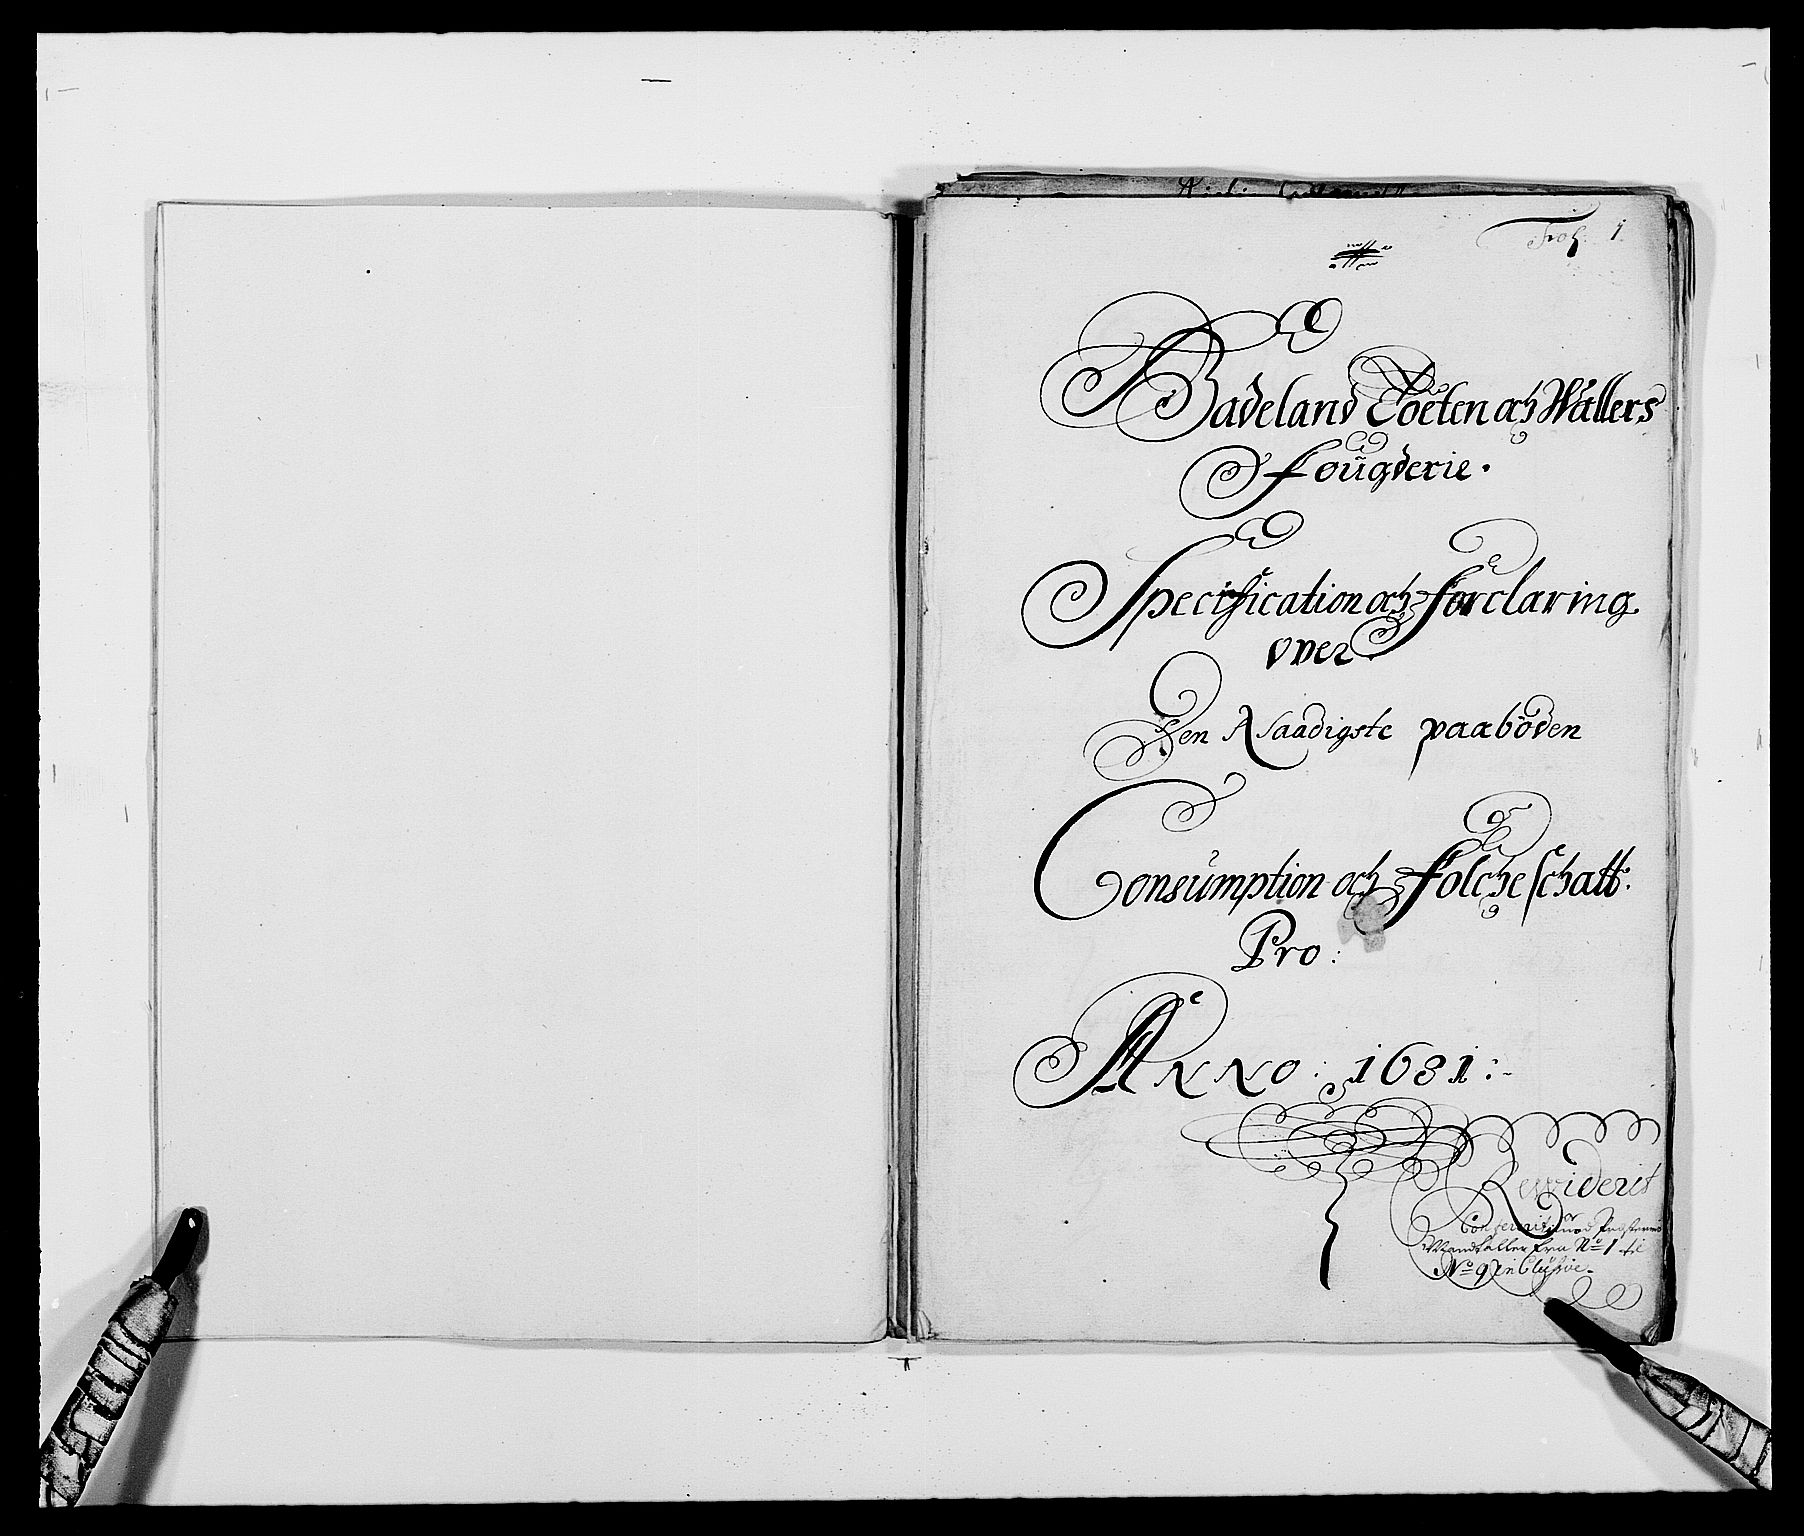 Fol: 1
Hadeland Toeten och Wallers
fougderie.
Specification och forclaring
over
Den Naadigste paaböden
Consumption och folche schatt:
Pro:
Anno: 1681:-
Revviderit
Mandtaller fra No 1 til
No 9 inclusive.